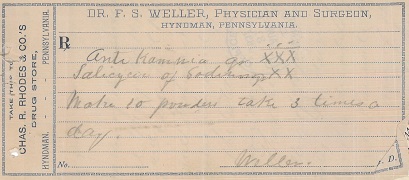 DR. F. S. WELLER, PHYSICIAN AND SURGEON,
HYNDMAN, PENNSYLVANIA.
TAKE THIS TO
CHAS. R. RHODES & CO.'S
DRUG STORE,
HYNDMAN, - - - PENNSYLVANIA.
R
Anti kamnia gr. XXX
Salicycin of XX
Make 10 powders take 3 times a
day.
No.
Weller.
M. D.